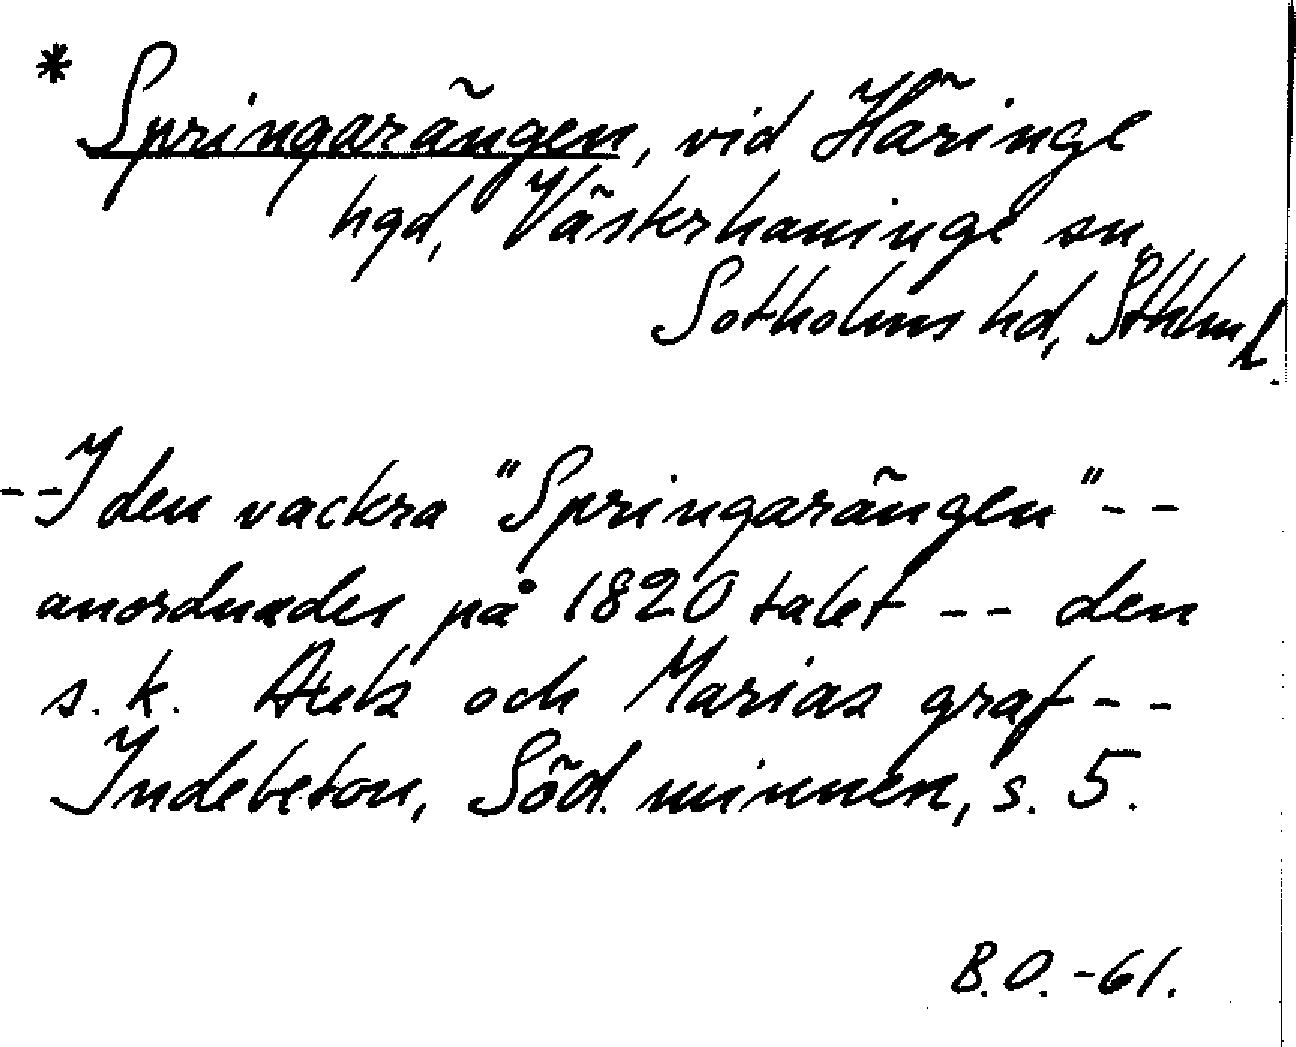 * Springarängen, vid Häringe
hgd, Västerhaninge sn,
Sotholms hd, Sthlm l.
--I den vackra "Springarängen"--
anordnades på 1820 talet -- den
s.k. Axels och Marias graf--
Indebetou, Söd. minnen, s. 5.
B.O. -61.